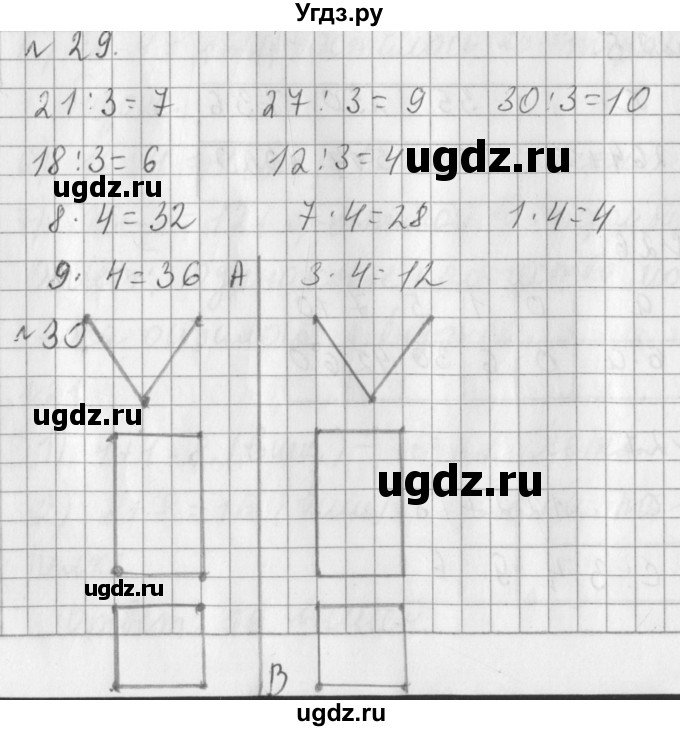 Угдз.ру
№ 29.
21:3=7 27:3=9 30:3=10
18:3=6 12:3=4 ugdz.ru
ugdz.ru
8·4=32 7·4=28 1·4=4
9·4=36 A 3·4=12
№30
ugdz.ru
ugdz.ru
ugdz.ru
B
ugdz.ru